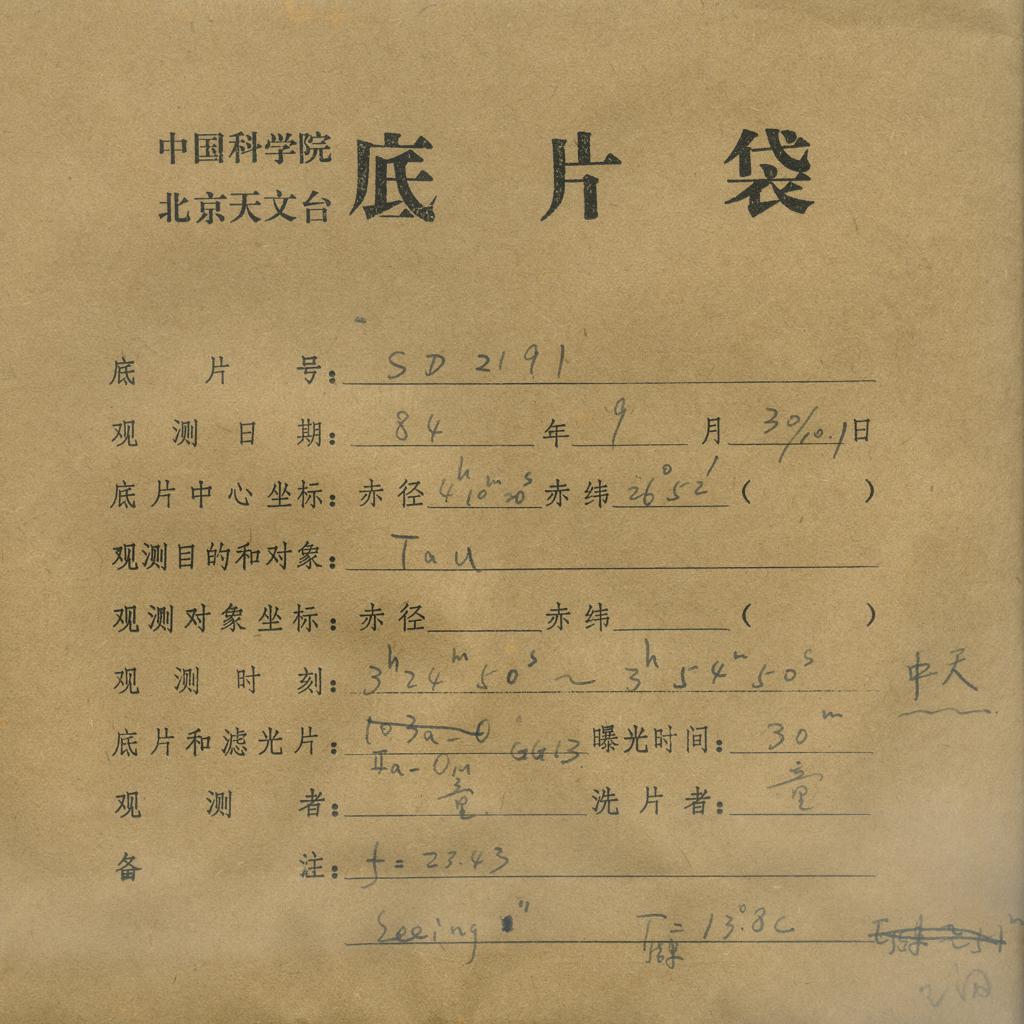 中国科学院
北京天文台
底片袋
底片号: SD 2191
观测日期: 84 年 9 月 30/10.1 日
底片中心坐标: 赤径 4h10m20s 赤纬 26°52′ ( )
观测目的和对象: Tau
观测对象坐标: 赤径 赤纬 ( )
观测时刻: 3h24m50s ~ 3h54m50s 中天
底片和滤光片: 103a-O GG13 曝光时间: 30m
IIa-O
观测者: 童 洗片者: 童
备注: f = 23.43
Seeing ″ T = 13°.8C